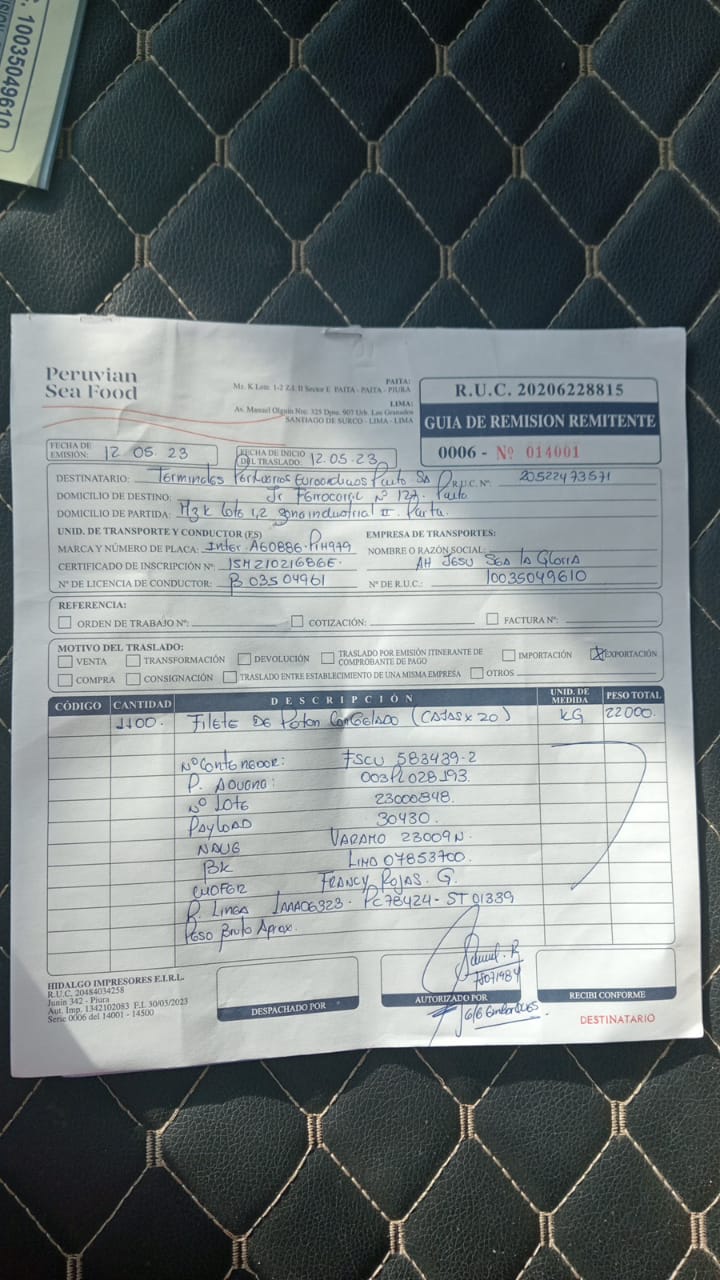 : 10035049610
Peruvian
Sea Food
PAITA:
Mz. K Lote. 1-2 Z.I. II Sector E PAITA - PAITA - PIURA
LIMA:
Av. Manuel Olguin Nro. 325 Dpto. 907 Urb. Los Granados
SANTIAGO DE SURCO - LIMA - LIMA
R.U.C. 20206228815
GUIA DE REMISION REMITENTE
0006 - Nº 014001
FECHA DE EMISIÓN: 12 05 23
FECHA DE INICIO DEL TRASLADO: 12.05.23
DESTINATARIO: Terminales Portuarios Euroandinos Paita SA R.U.C. Nº: 20522473571
DOMICILIO DE DESTINO: Jr Ferrocarril Nº 127. Paita
DOMICILIO DE PARTIDA: Mz k Lote 1,2 zona industrial II. Paita.
UNID. DE TRANSPORTE Y CONDUCTOR (ES)
EMPRESA DE TRANSPORTES:
MARCA Y NÚMERO DE PLACA: Inter A60886. P1H979
NOMBRE O RAZÓN SOCIAL: AH JESU SEA la GLORIA
CERTIFICADO DE INSCRIPCIÓN Nº: 15M21021686E.
Nº DE LICENCIA DE CONDUCTOR: B 03504961
Nº DE R.U.C.: 10035049610
REFERENCIA:
ORDEN DE TRABAJO Nº:
COTIZACIÓN:
FACTURA Nº:
MOTIVO DEL TRASLADO:
VENTA
TRANSFORMACIÓN
DEVOLUCIÓN
TRASLADO POR EMISIÓN ITINERANTE DE COMPROBANTE DE PAGO
IMPORTACIÓN
EXPORTACIÓN
COMPRA
CONSIGNACIÓN
TRASLADO ENTRE ESTABLECIMIENTO DE UNA MISMA EMPRESA
OTROS
CÓDIGO CANTIDAD DESCRIPCIÓN UNID. DE MEDIDA PESO TOTAL
1100. FILETE DE POTON CONGELADO (CAJAS x 20) KG 22000.
Nº Contenedor: FSCU 583439-2
P. ADUANA: 003PL028193
Nº LOTE 23000348.
PAYLOAD 30430.
NAVE VARAMO 23009 N.
BK LIMA 07853700.
CHOFER FRANCY ROJAS. G.
P. LINEA IAAA06323. PC 78424 - ST 01339
Peso Bruto Aprox.
HIDALGO IMPRESORES E.I.R.L.
R.U.C. 20484034258
Junin 342 - Piura
Aut. Imp. 1342102083 F.I. 30/03/2023
Serie 0006 del 14001 - 14500
DESPACHADO POR
78071984
AUTORIZADO POR
RECIBI CONFORME
DESTINATARIO